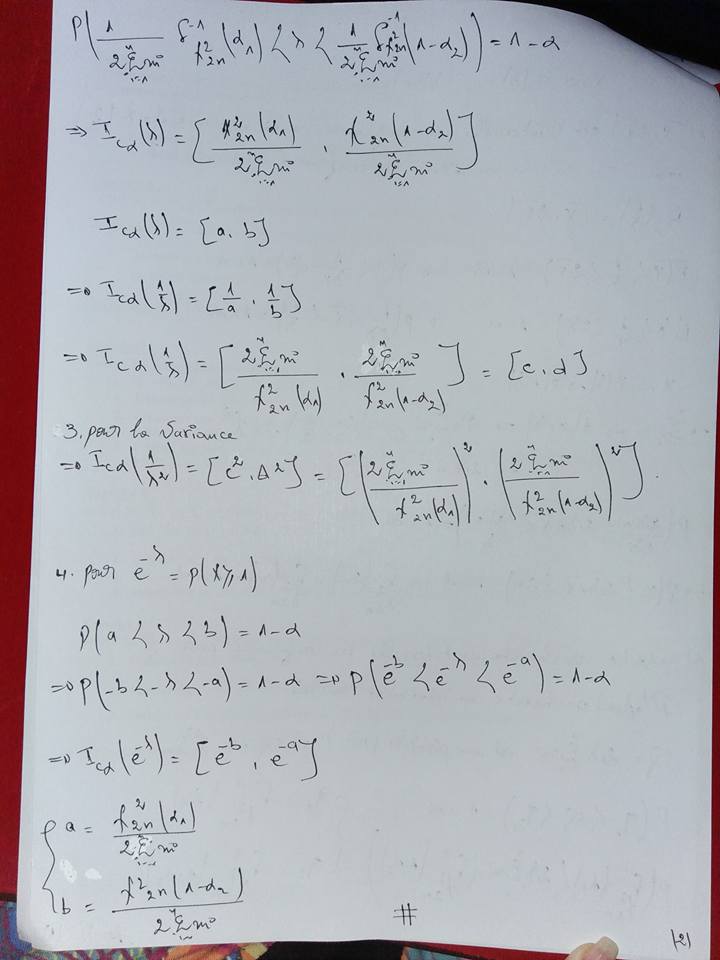 P( 1/(2 Σ_{i=1}^{n} xi) F^{-1}_{χ²_{2n}}(α₁) < λ < 1/(2 Σ_{i=1}^{n} xi) F^{-1}_{χ²_{2n}}(1-α₂) ) = 1-α
⇒ I_{cα}(λ) = [ χ²_{2n}(α₁) / (2 Σ_{i=1}^{n} xi) , χ²_{2n}(1-α₂) / (2 Σ_{i=1}^{n} xi) ]
I_{cα}(λ) = [a, b]
⇒ I_{cα}(1/λ) = [1/a , 1/b]
⇒ I_{cα}(1/λ) = [ (2 Σ^{n} xi) / χ²_{2n}(α₁) , (2 Σ^{n} xi) / χ²_{2n}(1-α₂) ] = [c, d]
3. pour la variance
⇒ I_{cα}(1/λ²) = [c², d²] = [ ( (2 Σ^{n} xi) / χ²_{2n}(α₁) )² , ( (2 Σ^{n} xi) / χ²_{2n}(1-α₂) )² ].
4. pour e^{-λ} = P(X ≥ 1)
P(a < λ < b) = 1-α
⇒ P(-b < -λ < -a) = 1-α ⇒ P(e^{-b} < e^{-λ} < e^{-a}) = 1-α
⇒ I_{cα}(e^{-λ}) = [e^{-b}, e^{-a}]
{ a = χ²_{2n}(α₁) / (2 Σ^{n} xi)
b = χ²_{2n}(1-α₂) / (2 Σ^{n} xi)
#
|2|